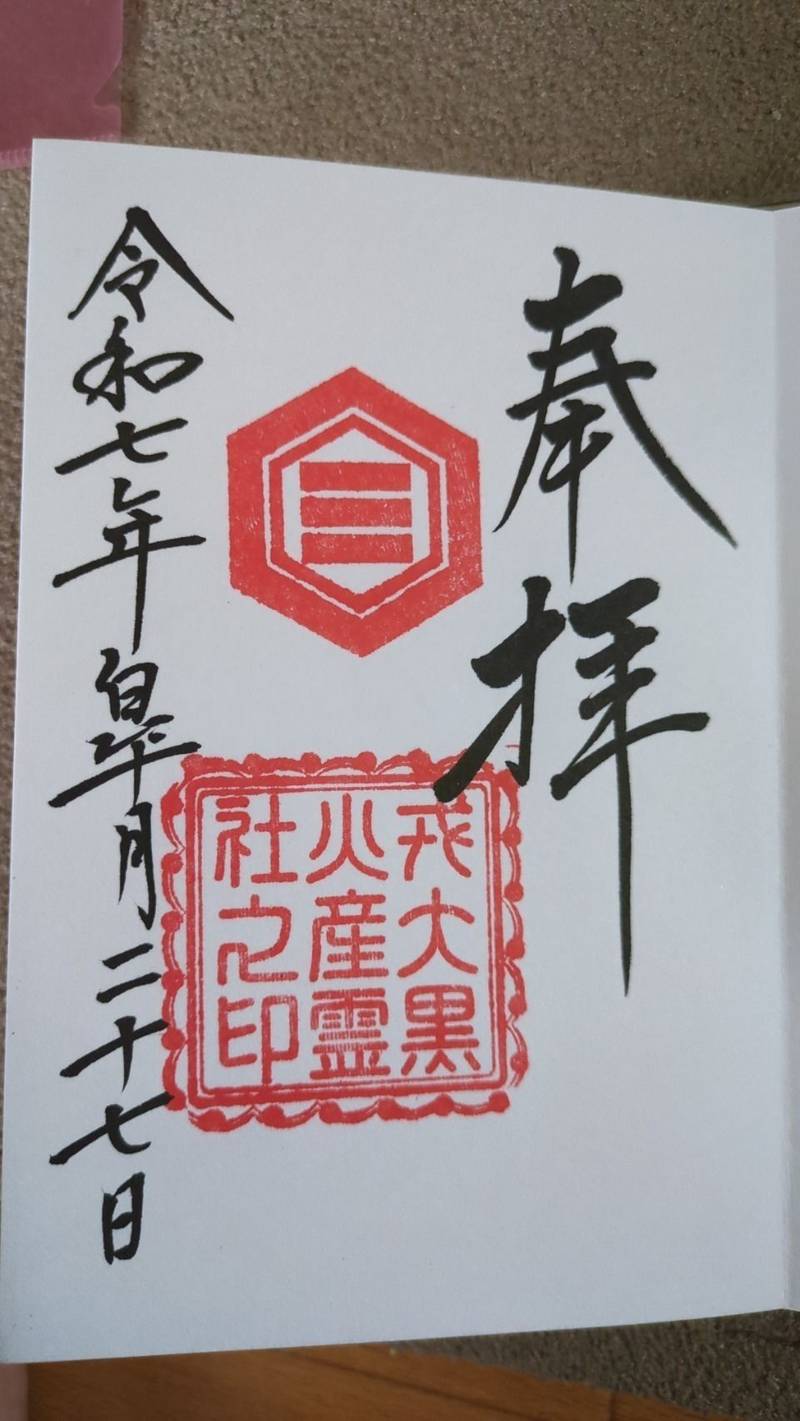 奉拝
戎大黒
火産霊
社之印
令和七年皐月二十七日